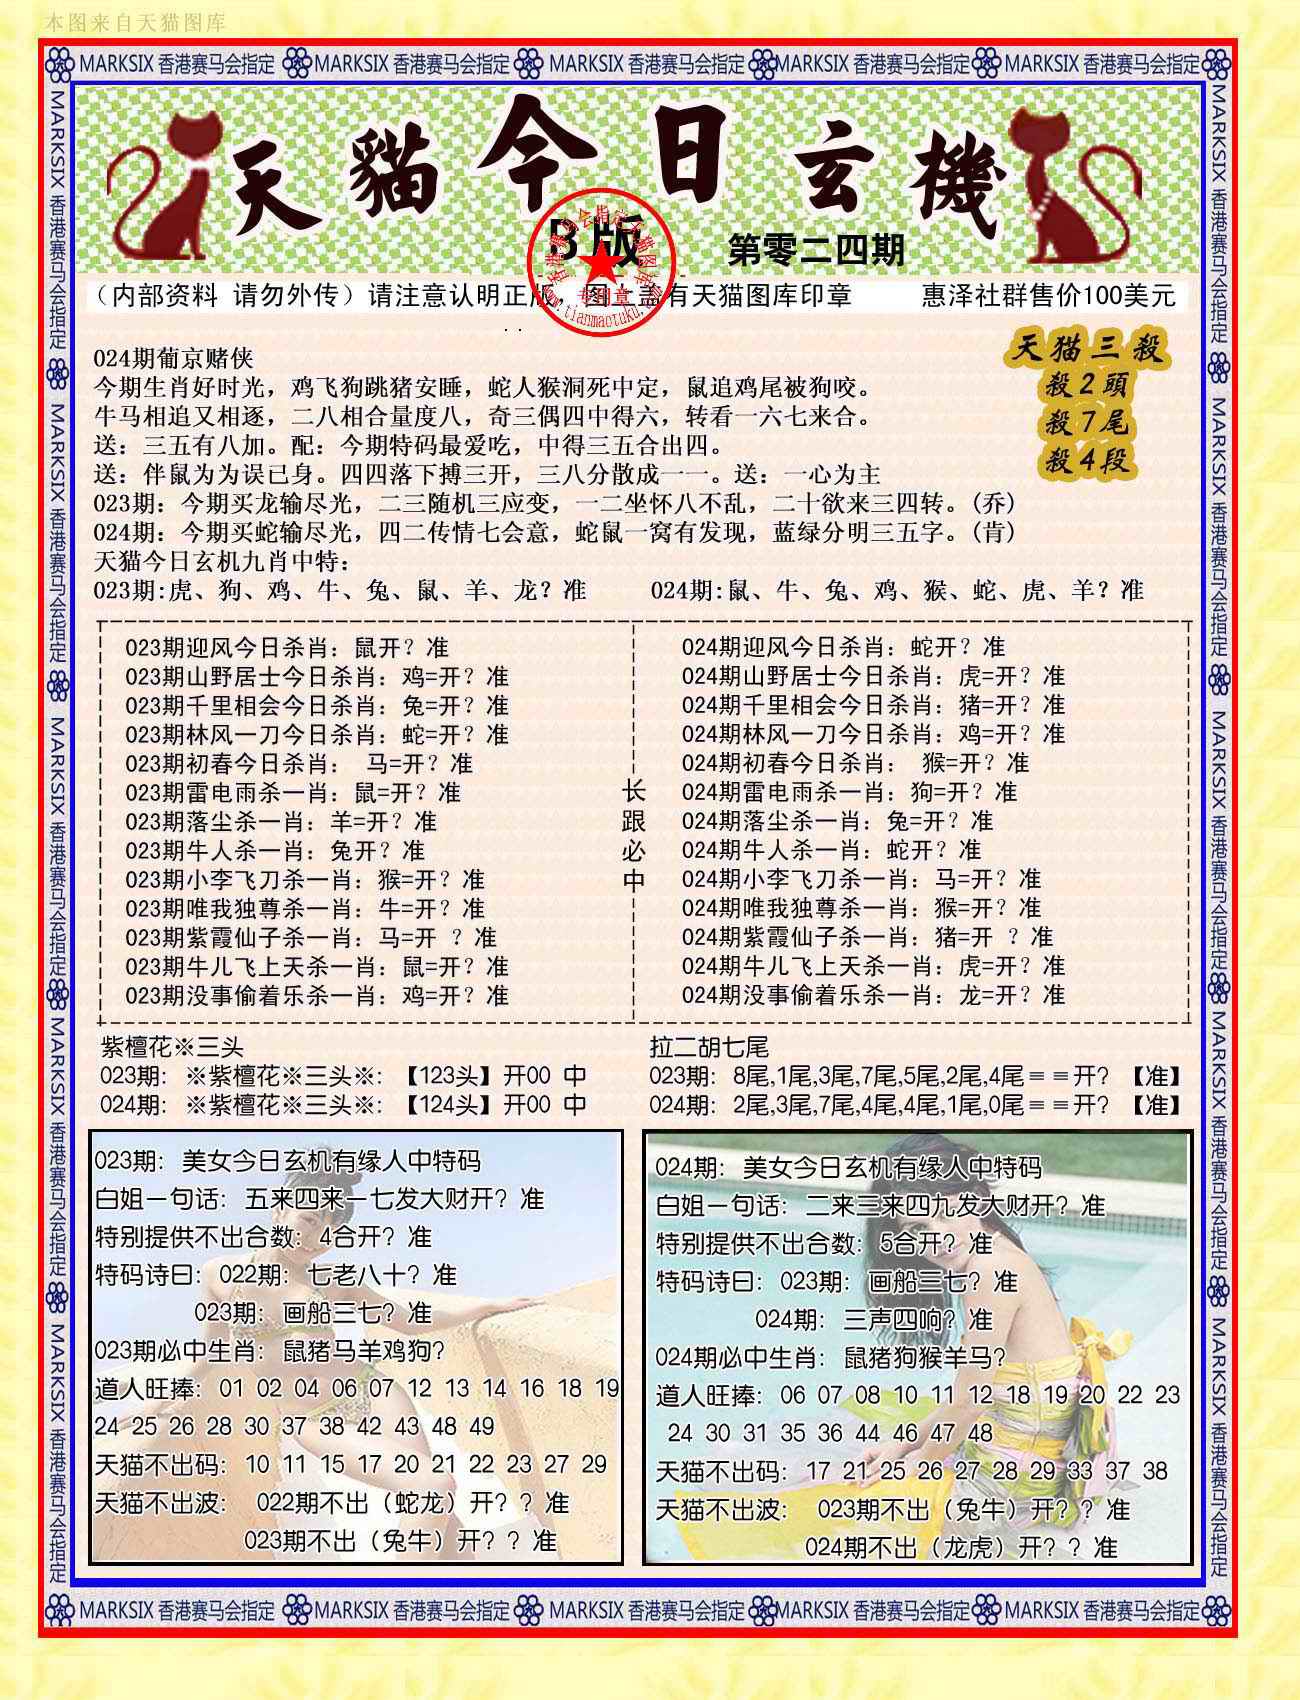 本图来自天猫图库
MARKSIX 香港赛马会指定 MARKSIX 香港赛马会指定 MARKSIX 香港赛马会指定 MARKSIX 香港赛马会指定 MARKSIX 香港赛马会指定
天貓今日玄機
B版
第零二四期
香港赛马会指定天猫图库
专用章
www.tianmaotuku.com
（内部资料 请勿外传）请注意认明正版，图上盖有天猫图库印章 惠泽社群售价100美元
天猫三殺
殺2頭
殺7尾
殺4段
024期葡京赌侠
今期生肖好时光，鸡飞狗跳猪安睡，蛇人猴洞死中定，鼠追鸡尾被狗咬。
牛马相追又相逐，二八相合量度八，奇三偶四中得六，转看一六七来合。
送：三五有八加。配：今期特码最爱吃，中得三五合出四。
送：伴鼠为为误已身。四四落下搏三开，三八分散成一一。送：一心为主
023期：今期买龙输尽光，二三随机三应变，一二坐怀八不乱，二十欲来三四转。(乔)
024期：今期买蛇输尽光，四二传情七会意，蛇鼠一窝有发现，蓝绿分明三五字。(肯)
天猫今日玄机九肖中特：
023期:虎、狗、鸡、牛、兔、鼠、羊、龙？准 024期:鼠、牛、兔、鸡、猴、蛇、虎、羊？准
023期迎风今日杀肖：鼠开？准
023期山野居士今日杀肖：鸡=开？准
023期千里相会今日杀肖：兔=开？准
023期林风一刀今日杀肖：蛇=开？准
023期初春今日杀肖： 马=开？准
023期雷电雨杀一肖：鼠=开？准
023期落尘杀一肖：羊=开？准
023期牛人杀一肖：兔开？准
023期小李飞刀杀一肖：猴=开？准
023期唯我独尊杀一肖：牛=开？准
023期紫霞仙子杀一肖：马=开 ？准
023期牛儿飞上天杀一肖：鼠=开？准
023期没事偷着乐杀一肖：鸡=开？准
长跟必中
024期迎风今日杀肖：蛇开？准
024期山野居士今日杀肖：虎=开？准
024期千里相会今日杀肖：猪=开？准
024期林风一刀今日杀肖：鸡=开？准
024期初春今日杀肖： 猴=开？准
024期雷电雨杀一肖：狗=开？准
024期落尘杀一肖：兔=开？准
024期牛人杀一肖：蛇开？准
024期小李飞刀杀一肖：马=开？准
024期唯我独尊杀一肖：猴=开？准
024期紫霞仙子杀一肖：猪=开 ？准
024期牛儿飞上天杀一肖：虎=开？准
024期没事偷着乐杀一肖：龙=开？准
紫檀花※三头
023期：※紫檀花※三头※：【123头】开00 中
024期：※紫檀花※三头※：【124头】开00 中
拉二胡七尾
023期：8尾,1尾,3尾,7尾,5尾,2尾,4尾＝＝开？【准】
024期：2尾,3尾,7尾,4尾,4尾,1尾,0尾＝＝开？【准】
023期：美女今日玄机有缘人中特码
白姐一句话：五来四来一七发大财开？准
特别提供不出合数：4合开？准
特码诗曰：022期：七老八十？准
023期：画船三七？准
023期必中生肖：鼠猪马羊鸡狗?
道人旺捧：01 02 04 06 07 12 13 14 16 18 19
24 25 26 28 30 37 38 42 43 48 49
天猫不出码：10 11 15 17 20 21 22 23 27 29
天猫不出波： 022期不出（蛇龙）开？？准
023期不出（兔牛）开？？准
024期：美女今日玄机有缘人中特码
白姐一句话：二来三来四九发大财开？准
特别提供不出合数：5合开？准
特码诗曰：023期：画船三七？准
024期：三声四响？准
024期必中生肖：鼠猪狗猴羊马?
道人旺捧：06 07 08 10 11 12 18 19 20 22 23
24 30 31 35 36 44 46 47 48
天猫不出码：17 21 25 26 27 28 29 33 37 38
天猫不出波： 023期不出（兔牛）开？？准
024期不出（龙虎）开？？准
MARKSIX 香港赛马会指定 MARKSIX 香港赛马会指定 MARKSIX 香港赛马会指定 MARKSIX 香港赛马会指定 MARKSIX 香港赛马会指定
MARKSIX 香港赛马会指定 MARKSIX 香港赛马会指定 MARKSIX 香港赛马会指定 MARKSIX 香港赛马会指定 MARKSIX 香港赛马会指定
MARKSIX 香港赛马会指定 MARKSIX 香港赛马会指定 MARKSIX 香港赛马会指定 MARKSIX 香港赛马会指定 MARKSIX 香港赛马会指定